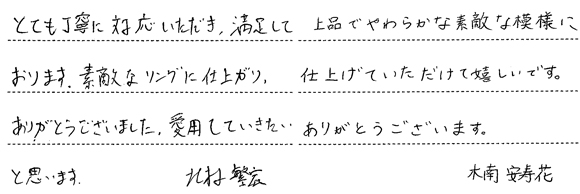 とても丁寧に対応いただき、満足して
おります。素敵なリングに仕上がり、
ありがとうございました。愛用していきたい
と思います。
上品でやわらかな素敵な模様に
仕上げていただけて嬉しいです。
ありがとうございます。